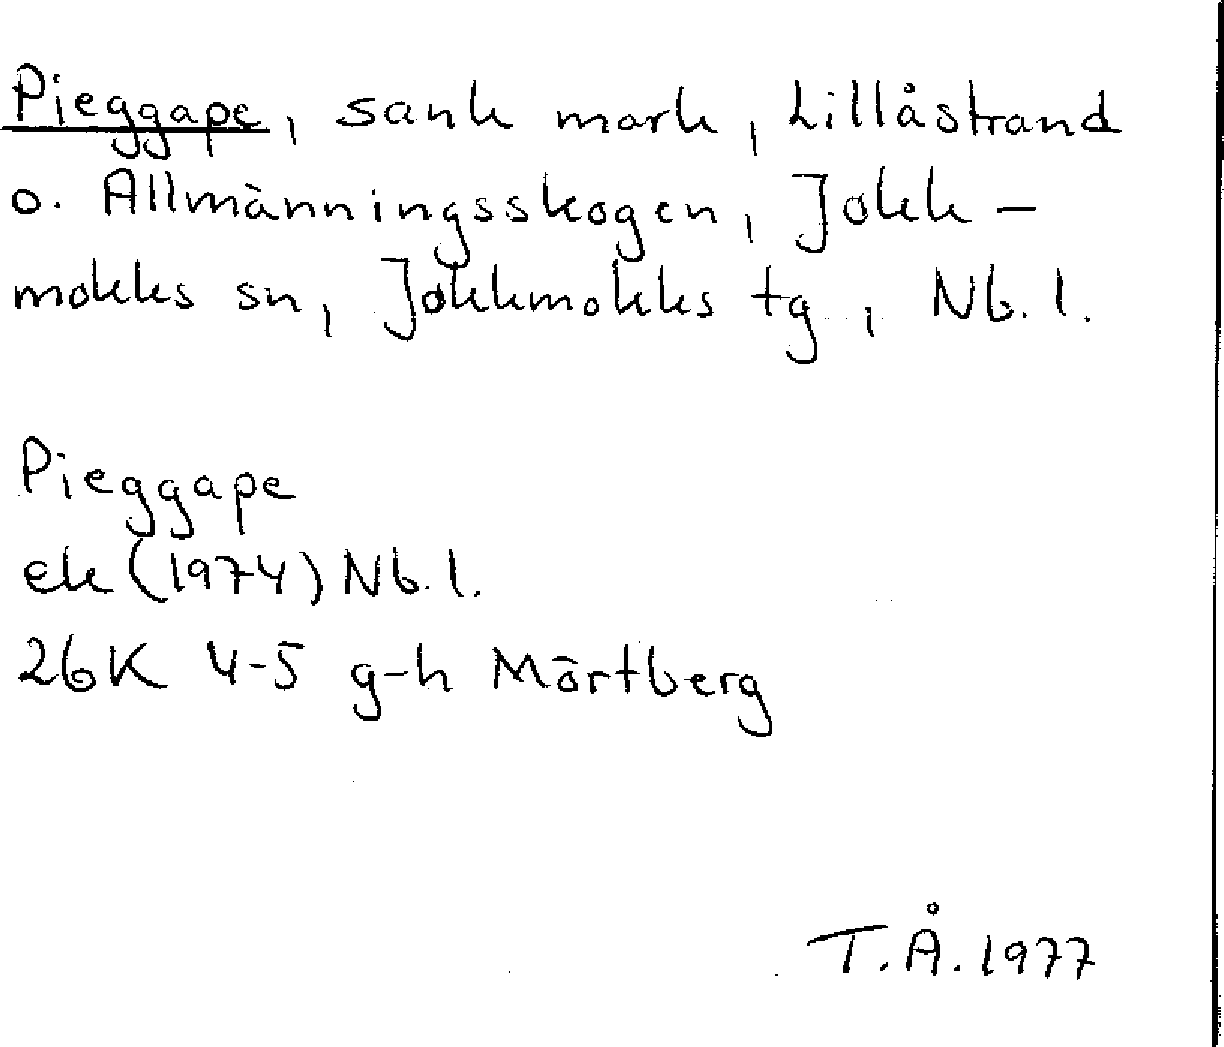 Pieggape, sank mark, Lillåstrand
o. Allmänningsskogen, Jokk-
mokks sn, Jokkmokks tg, Nb. l.
Pieggape
ek (1974) Nb. l.
26K 4-5 g-h Mörtberg
T.Å. 1977